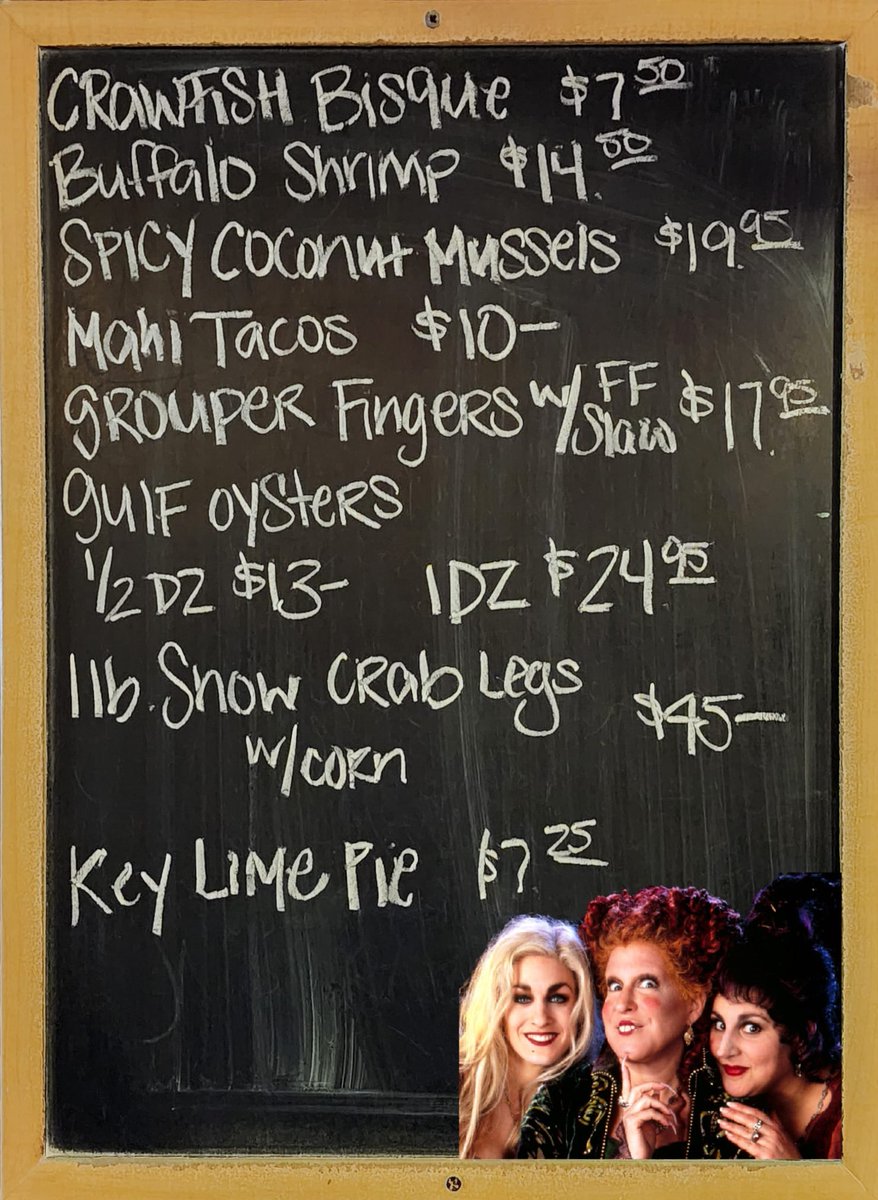 CRAWFISH Bisque $7 50
Buffalo Shrimp $14.00
SPICY Coconut Mussels $19.95
Mahi Tacos $10-
GROUPER FingeRS w/ FF Slaw $17.95
GulF OySteRS
1/2 DZ $13- 1 DZ $24 95
1 lb. Snow CRab Legs
w/corn $45-
Key LiMe Pie $7 25